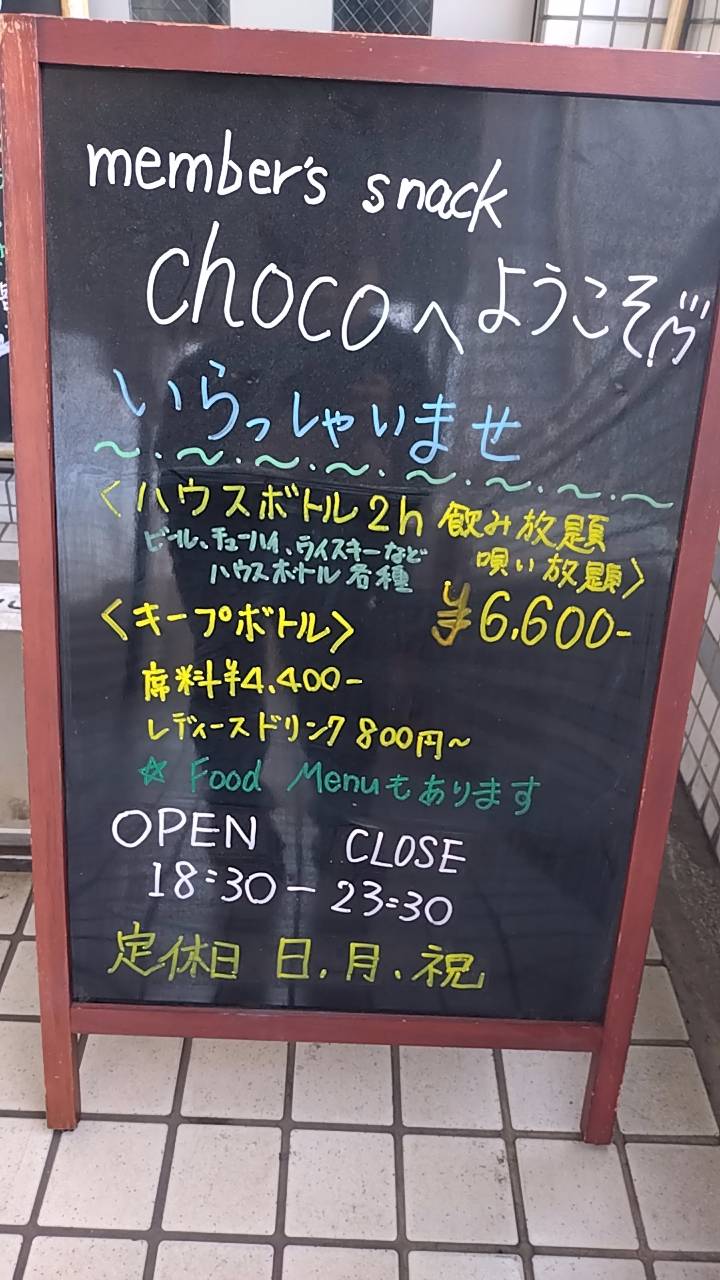 member's snack
chocoへようこそ
いらっしゃいませ
〜・〜・〜・〜・〜・〜・〜・〜
〈ハウスボトル2h 飲み放題
唄い放題〉
ビール、チューハイ、ウイスキーなど
ハウスボトル各種
¥6,600-
〈キープボトル〉
席料¥4,400-
レディースドリンク 800円〜
☆ Food Menuもあります
OPEN CLOSE
18:30 - 23:30
定休日 日、月、祝